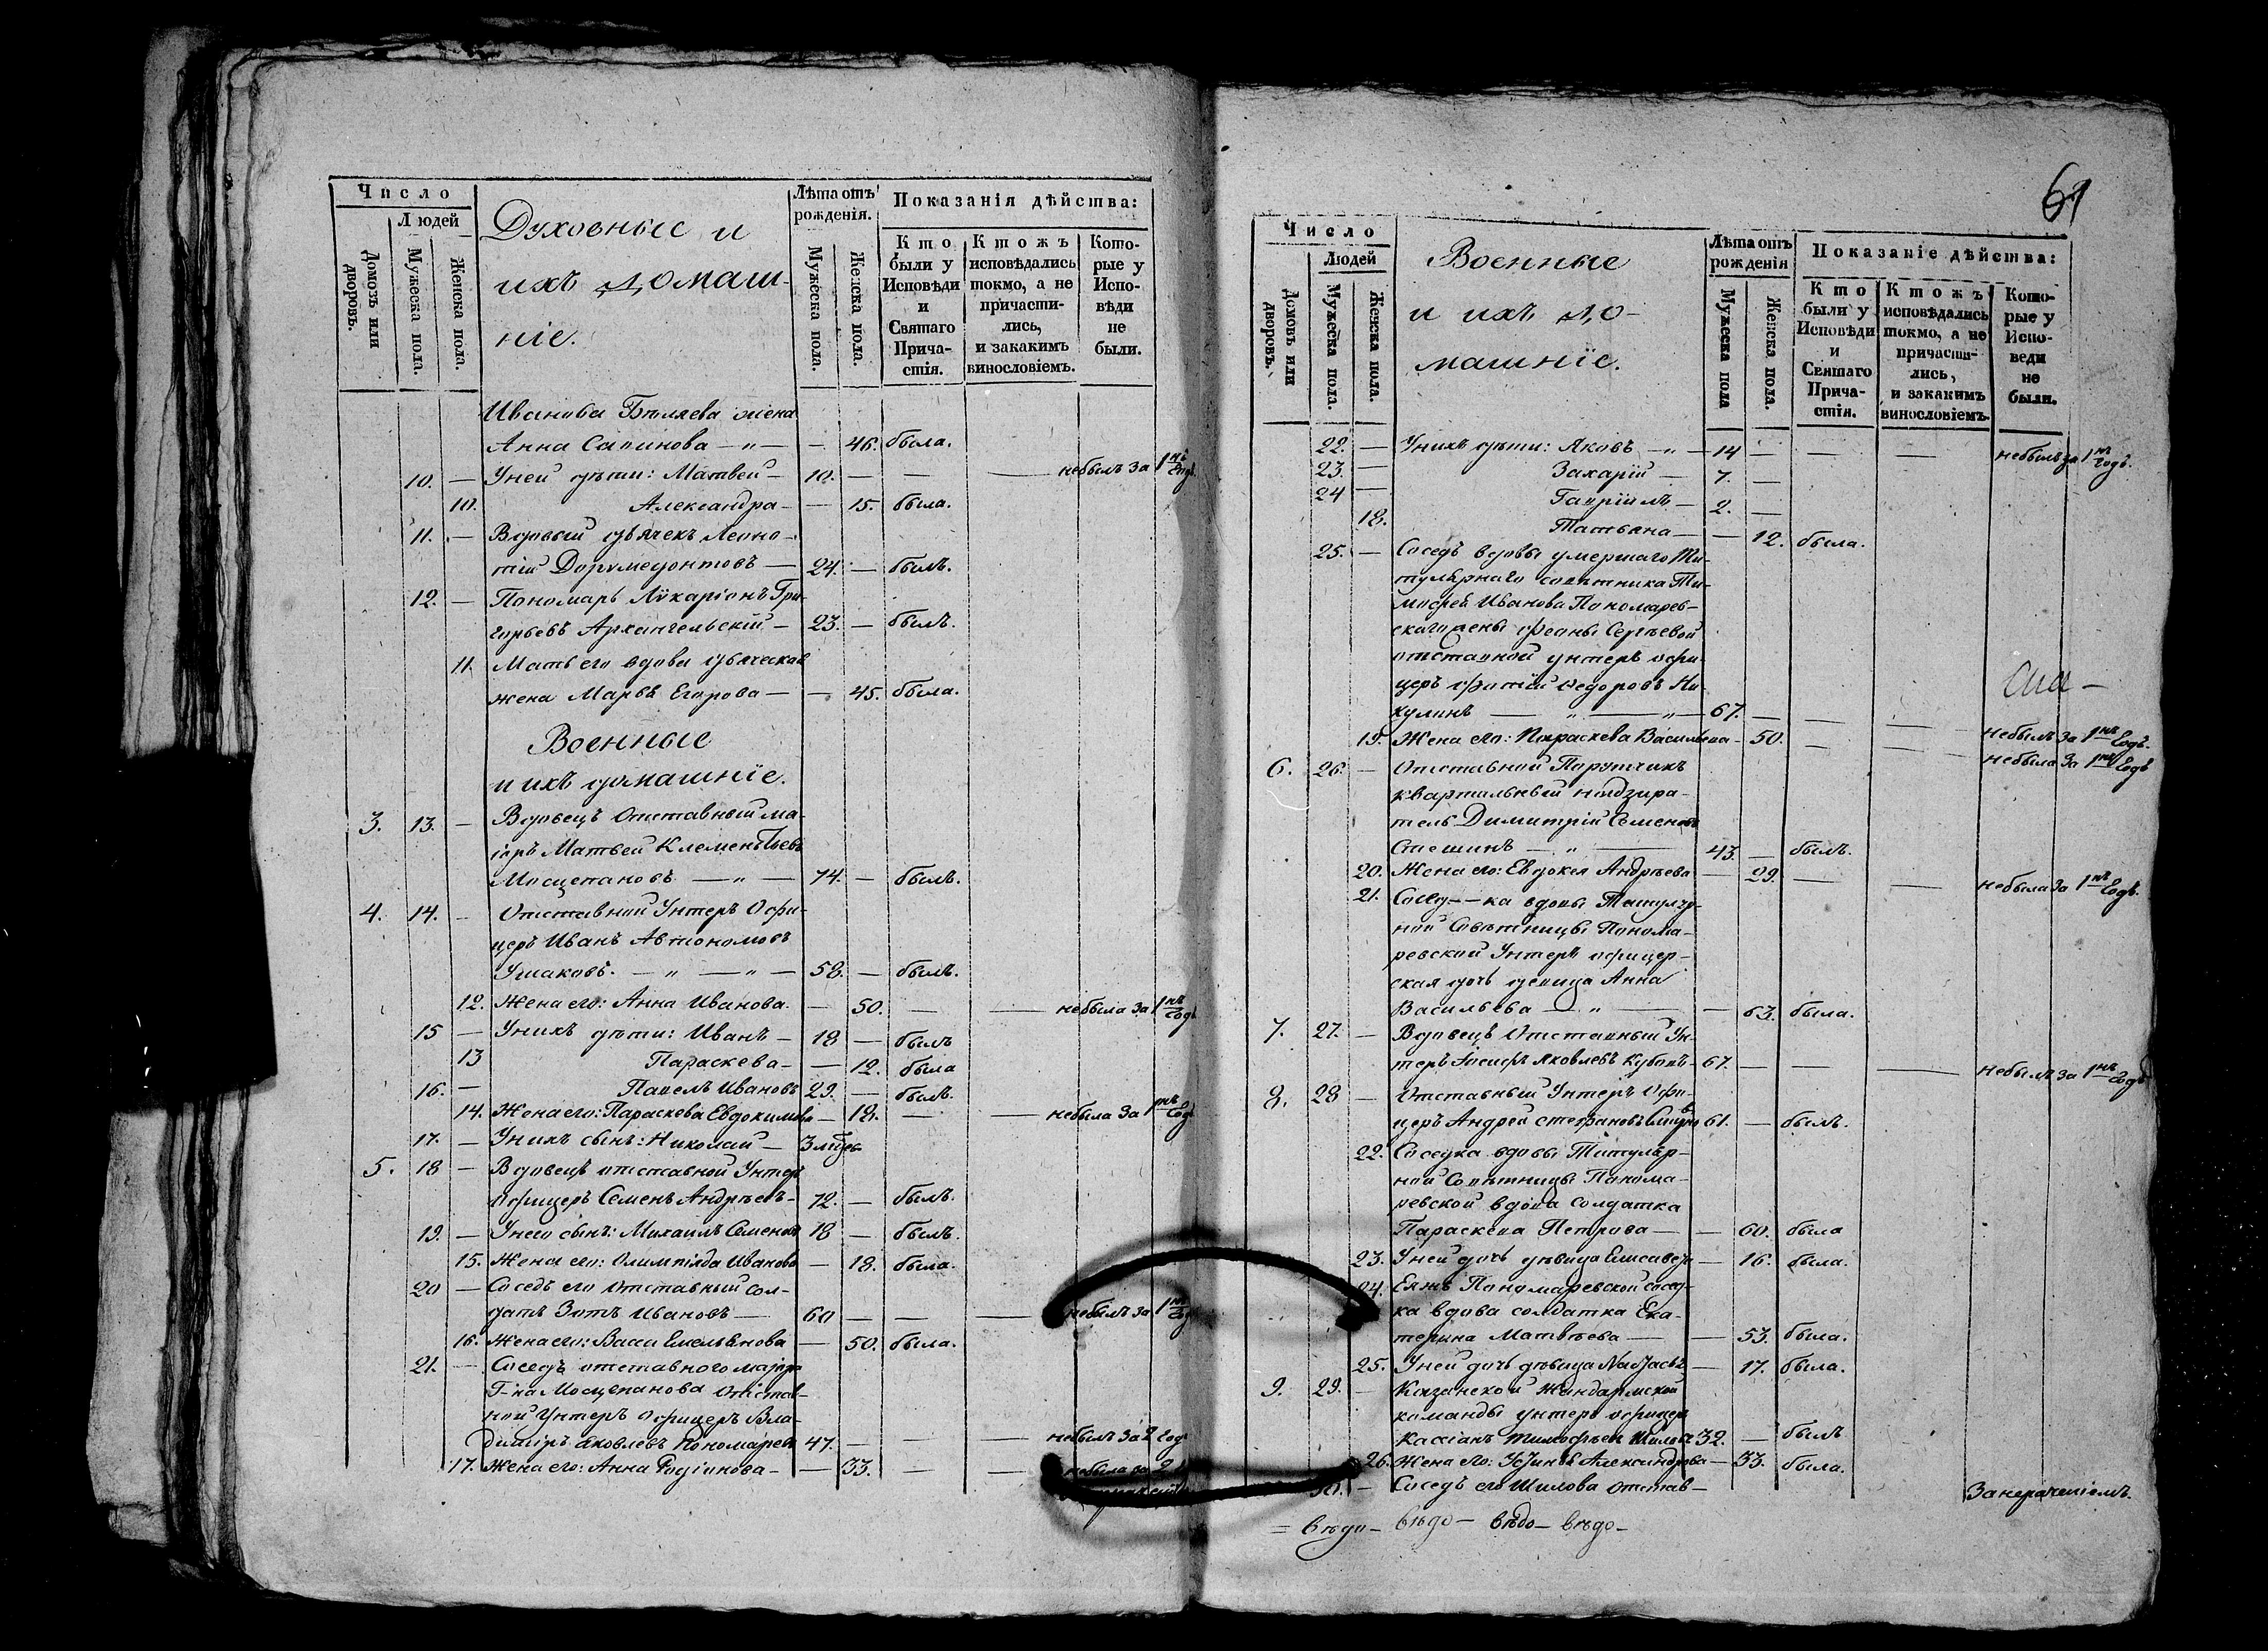 Число
Людей
Домовъ или дворовъ.
Мужеска пола.
Женска пола.
Духовные и
ихъ домаш-
ніе.
Лѣта отъ рожденія.
Мужеска пола.
Женска пола.
Показанія дѣйства:
Кто были у Исповѣди и Святаго Прича- стія.
Ктожъ исповѣдались токмо, а не причасти- лись, и закакимъ винословіемъ.
Кото- рые у Испо- вѣди не были.
Иванова Бѣляева жена
Анна — „ — — 46. была.
10. — Уней дѣти: Матвей — 10. — — — небылъ за 1нъ Годъ.
10. Александра — — 15. была.
11. — Вдовый дьячекъ Леон-
тій Доримедонтовъ — 24. — былъ.
12. — Пономарь Иларіонъ Гри-
горьевъ Архангельскій — 23. — былъ.
11. Мать его вдова дьяческая
жена Марѳа Егорова — — 45. была.
Военные
и ихъ домашніе.
3. 13. — Вдовецъ Отставный ма-
іоръ Матвей Клементьевъ
Мосцепановъ — „ — 74. — былъ.
4. 14. — Отставной Унтеръ Офи-
церъ Иванъ Автономовъ
Ушаковъ. — „ — „ — 58. — былъ.
12. Жена его: Анна Иванова. — 50. — — небыла за 1нъ Годъ
15 — Унихъ дѣти: Иванъ — 18 — былъ
13 Параскева — — 12. была
16. — Павелъ Ивановъ 29. — былъ.
14. Жена его: Параскева Евдокимова — 18. — — небыла за 1нъ Годъ
17. — Унихъ сынъ: Николай — 3
5. 18 — Вдовецъ отставной Унтеръ
Офицеръ Семенъ Андреевъ — 72. — былъ.
19. — Унего сынъ: Михаилъ Семеновъ 18 — былъ.
15. Жена его: Олимпіада Иванова — 18. была.
20 — Соседъ его Отставный сол-
датъ Зотъ Ивановъ — 60 — — — небылъ за 1нъ Годъ
16. Жена его: Васса Емельянова — 50. была.
21. — Соседъ отставного маіора
Г-на Мосцепанова Отстав-
ной Унтеръ Офицеръ Вла-
диміръ Яковлевъ Пономаревъ 47. — — — небылъ за 2 Года
17. Жена его: Анна Родіонова — — 33. — — небыла за 2
61
Число
Людей
Домовъ или дворовъ.
Мужеска пола.
Женска пола.
Военные
и ихъ до-
машніе.
Лѣта отъ рожденія
Мужеска пола
Женска пола.
Показаніе дѣйства:
Кто были у Исповѣди и Святаго Прича- стія.
Ктожъ исповѣдались токмо, а не причасти- лись, и закакимъ винословіемъ.
Кото- рые у Испо- веди не были.
22. — Унихъ дѣти: Яковъ — „ — 14 — — — небылъ за 1нъ Годъ.
23. — Захарій — 7. —
24 — Гавріилъ — 2. —
18. Татьяна — — 12. была.
25. — Соседъ вдовы умершаго Ти-
тулярнаго советника Ти-
мофея Иванова Пономарев-
скаго жены Сергѣевой
отставной унтеръ офи-
церъ Федоровъ Ни-
кулинъ — „ — „ — 67. — — — небылъ за 1нъ Годъ.
19. Жена его: Параскева Васильева — 50. — — небыла за 1нъ Годъ
6. 26. — Отставной Порутчикъ
квартальный надзира-
тель Димитрій Семеновъ
Стешинъ — „ — 43. — былъ.
20. Жена его: Евдокея Андрѣева — 29. — — небыла за 1нъ Годъ.
21. Сосед--ка вдовы Титуляр-
ной Совѣтницы Понома-
ревской Унтеръ офицер-
ская дочь девица Анна
Васильева — „ — — 63. была.
7. 27. — Вдовецъ Отставный Ун-
теръ Іосифъ Яковлевъ — 67. — — — небылъ за 1нъ Годъ
8. 28 — Отставный Унтеръ Офи-
церъ Андрей Стефановъ 61. — былъ.
22. Соседка вдовы Титуляр-
ной Советницы Понома-
ревской вдова солдатка
Параскева Петрова — — 60. была
23. Уней дочь дѣвица Елисавета — 16. была.
24. Еяжъ Пономаревской сосед-
ка вдова солдатка Ека-
терина Матвѣева — — 53. была.
25. Уней дочь дѣвица — 17. была.
9. 29. — Казанской Жандармской
команды унтеръ офицеръ
Кассіанъ Тимофѣевъ Шиловъ 32. — былъ
26. Жена его: Устинья Александрова — 33. была.
30. — Соседъ его Шилова Отстав-
Занераченіемъ.
= вѣдо- вѣдо- вѣдо- вѣдо-